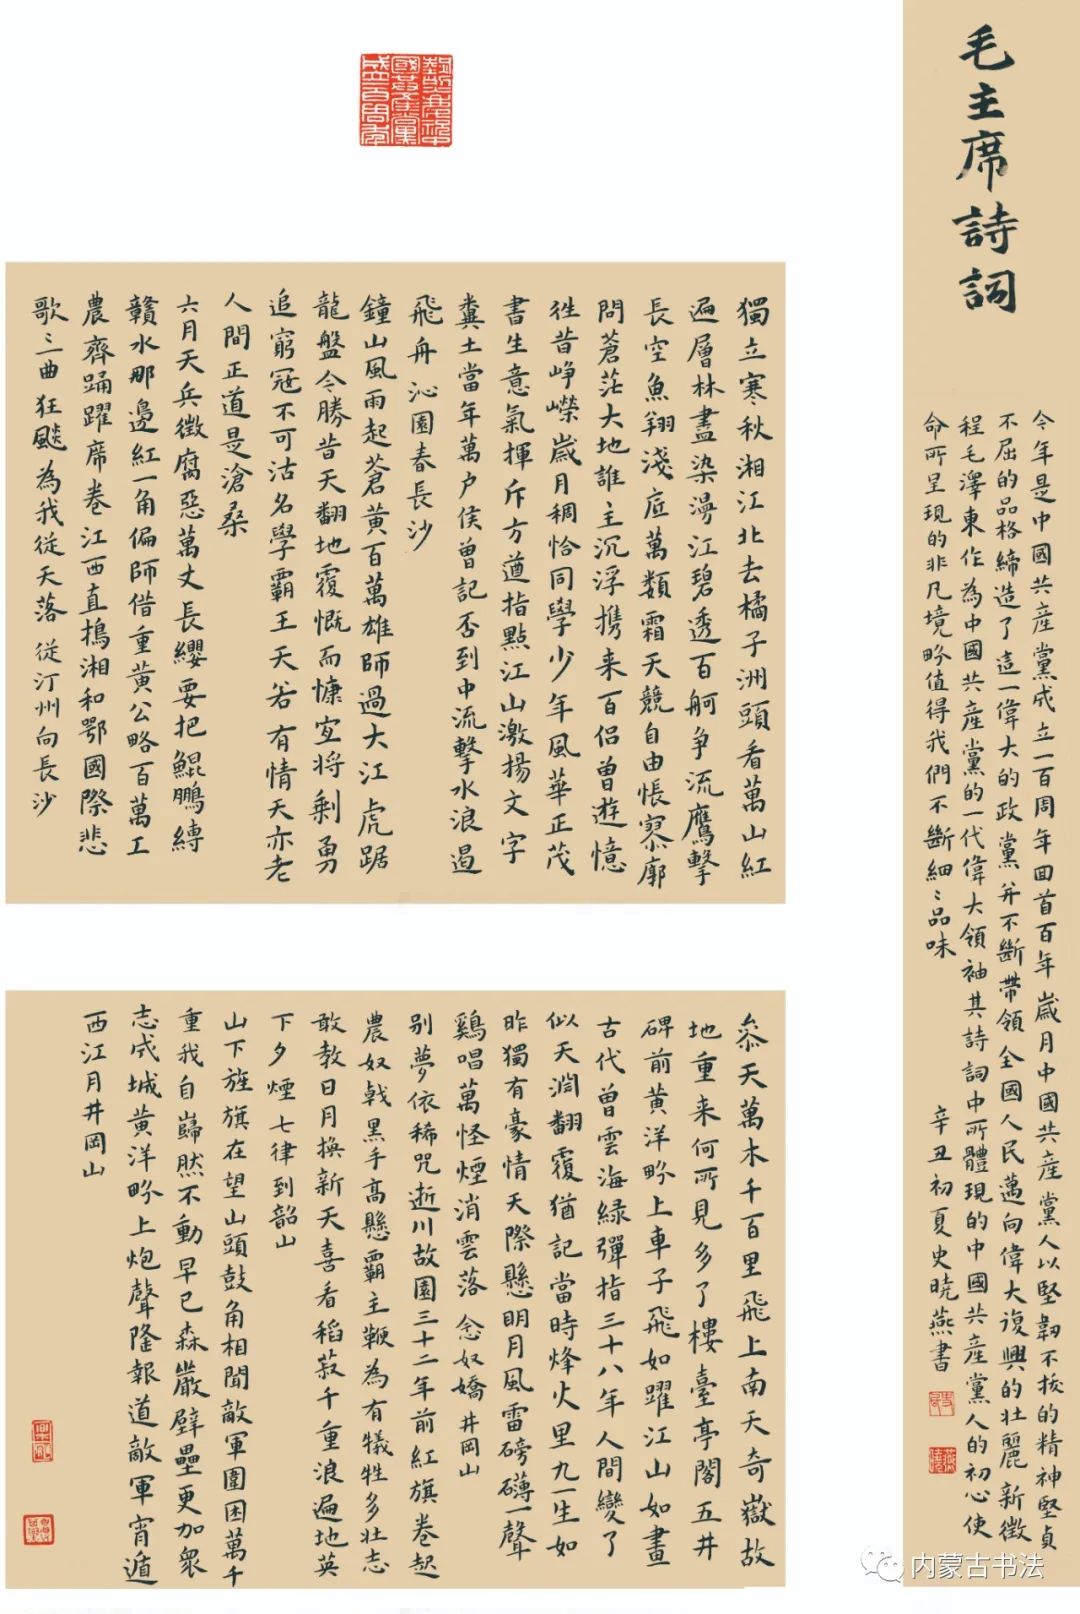 毛主席詩詞
今年是中國共産黨成立一百周年回首百年歲月中國共産黨人以堅韌不拔的精神堅貞
不屈的品格締造了這一偉大的政黨并不斷帶領全國人民邁向偉大復興的壯麗新徵
程毛澤東作為中國共産黨的一代偉大領袖其詩詞中所體現的中國共産黨人的初心使
命所呈現的非凡境畧值得我們不斷細〻品味
辛丑初夏史曉燕書
獨立寒秋湘江北去橘子洲頭看萬山紅
遍層林盡染漫江碧透百舸爭流鷹擊
長空魚翔淺底萬類霜天競自由悵寥廓
問蒼茫大地誰主沉浮攜来百侣曾遊憶
往昔崢嶸歲月稠恰同學少年風華正茂
書生意氣揮斥方遒指點江山激揚文字
糞土當年萬户侯曾記否到中流擊水浪遏
飛舟 沁園春長沙
鐘山風雨起蒼黄百萬雄師過大江虎踞
龍盤今勝昔天翻地覆慨而慷宜將剩勇
追窮寇不可沽名學霸王天若有情天亦老
人間正道是滄桑
六月天兵徵腐惡萬丈長纓要把鯤鵬縛
贛水那邊紅一角偏師借重黄公略百萬工
農齊踊躍席卷江西直搗湘和鄂國際悲
歌一曲狂飈為我從天落 從汀州向長沙
參天萬木千百里飛上南天奇嶽故
地重来何所見多了樓臺亭閣五井
碑前黄洋界上車子飛如躍江山如畫
古代曾雲海緑彈指三十八年人間變了
似天淵翻覆猶記當時烽火里九一生如
昨獨有豪情天際懸明月風雷磅礴一聲
鷄唱萬怪煙消雲落 念奴嬌井岡山
别夢依稀咒逝川故園三十二年前紅旗卷起
農奴戟黑手高懸霸主鞭為有犧牲多壯志
敢教日月换新天喜看稻菽千重浪遍地英
下夕煙 七律到韶山
山下旌旗在望山頭鼓角相聞敵軍圍困萬千
重我自巋然不動早已森嚴壁壘更加衆
志成城黄洋界上炮聲隆報道敵軍宵遁
西江月井岡山
内蒙古书法